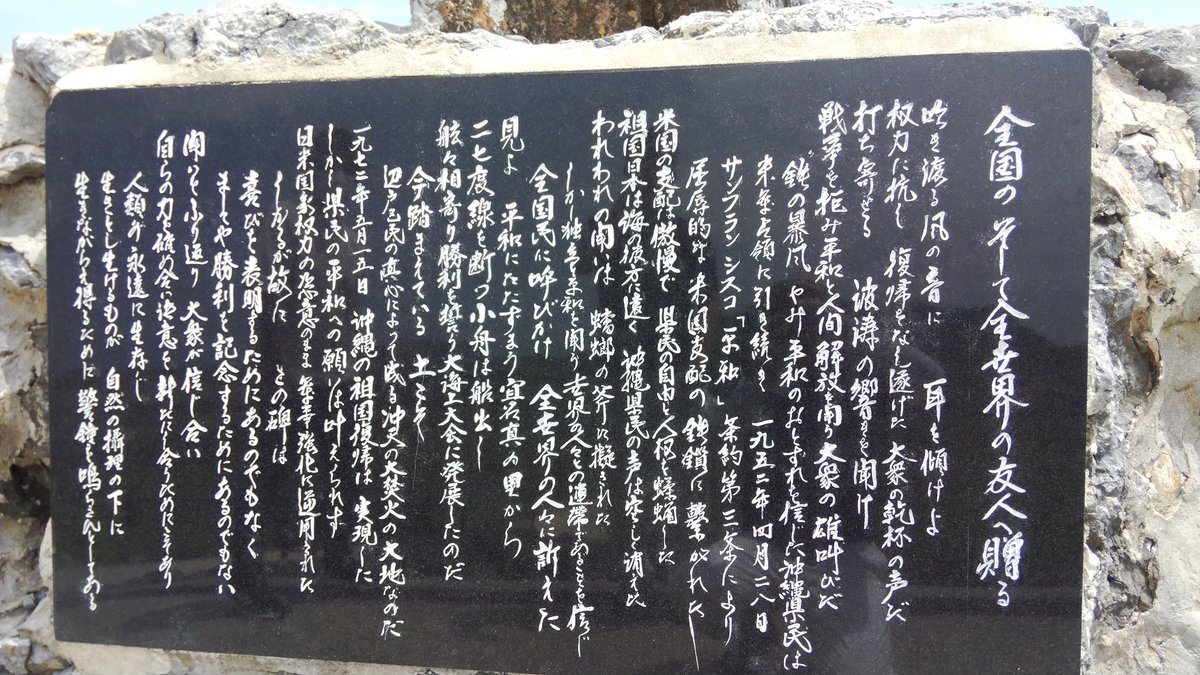 全国の そして全世界の友人へ贈る
吹き渡る風の音に 耳を傾けよ
权力に抗し 復帰をなし遂げた 大衆の乾杯の声だ
打ち寄せる 波濤の響きを聞け
戦争を拒み平和と人間解放を闘う大衆の雄叫びだ
“鉄の暴風”やみ平和のおとずれを信じた沖縄県民は
米軍占領に引き続き 一九五二年四月二八日
サンフランシスコ「平和」条約第三条により
屈辱的な米国支配の鉄鎖に繋がれた
米国の支配は傲慢で 県民の自由と人权を蹂躙した
祖国日本は海の彼方に遠く 沖縄県民の声は空しく消えた
われわれの闘いは 蟷螂の斧に擬された
しかし独立と平和を闘う世界の人々との連帯であることを信じ
全国民に呼びかけ 全世界の人々に訴えた
見よ 平和にたたずまう宜名真の里から
二七度線を断つ小舟は船出し
舷々相寄り勝利を誓う大海上大会に発展したのだ
今踏まえている 土こそ
辺戸区民の真心によって成る沖天の大焚火の大地なのだ
一九七二年五月一五日 沖縄の祖国復帰は 実現した
しかし県民の平和への願いは叶えられず
日米国家权力の恣意のまま軍事強化に逆用された
しかるが故に この碑は
喜びを表明するためにあるのでもなく
ましてや勝利を記念するためにあるのでもない
闘いをふり返り 大衆が信じ合い
自らの力を確め合い決意を新たにし合うためにこそあり
人類が永遠に生存し
生きとし生けるものが 自然の攝理の下に
生きながらえ得るために 警鐘を鳴らさんとしてある